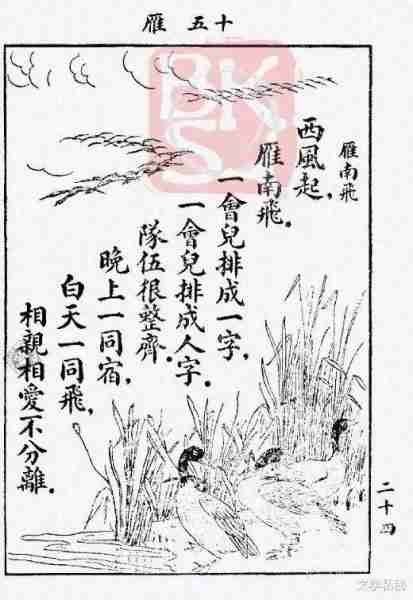 雁 五十
雁南飛
西風起，
雁南飛。
一會兒排成一字，
一會兒排成人字。
隊伍很整齊。
晚上一同宿，
白天一同飛，
相親相愛不分離。
二十四
BKS